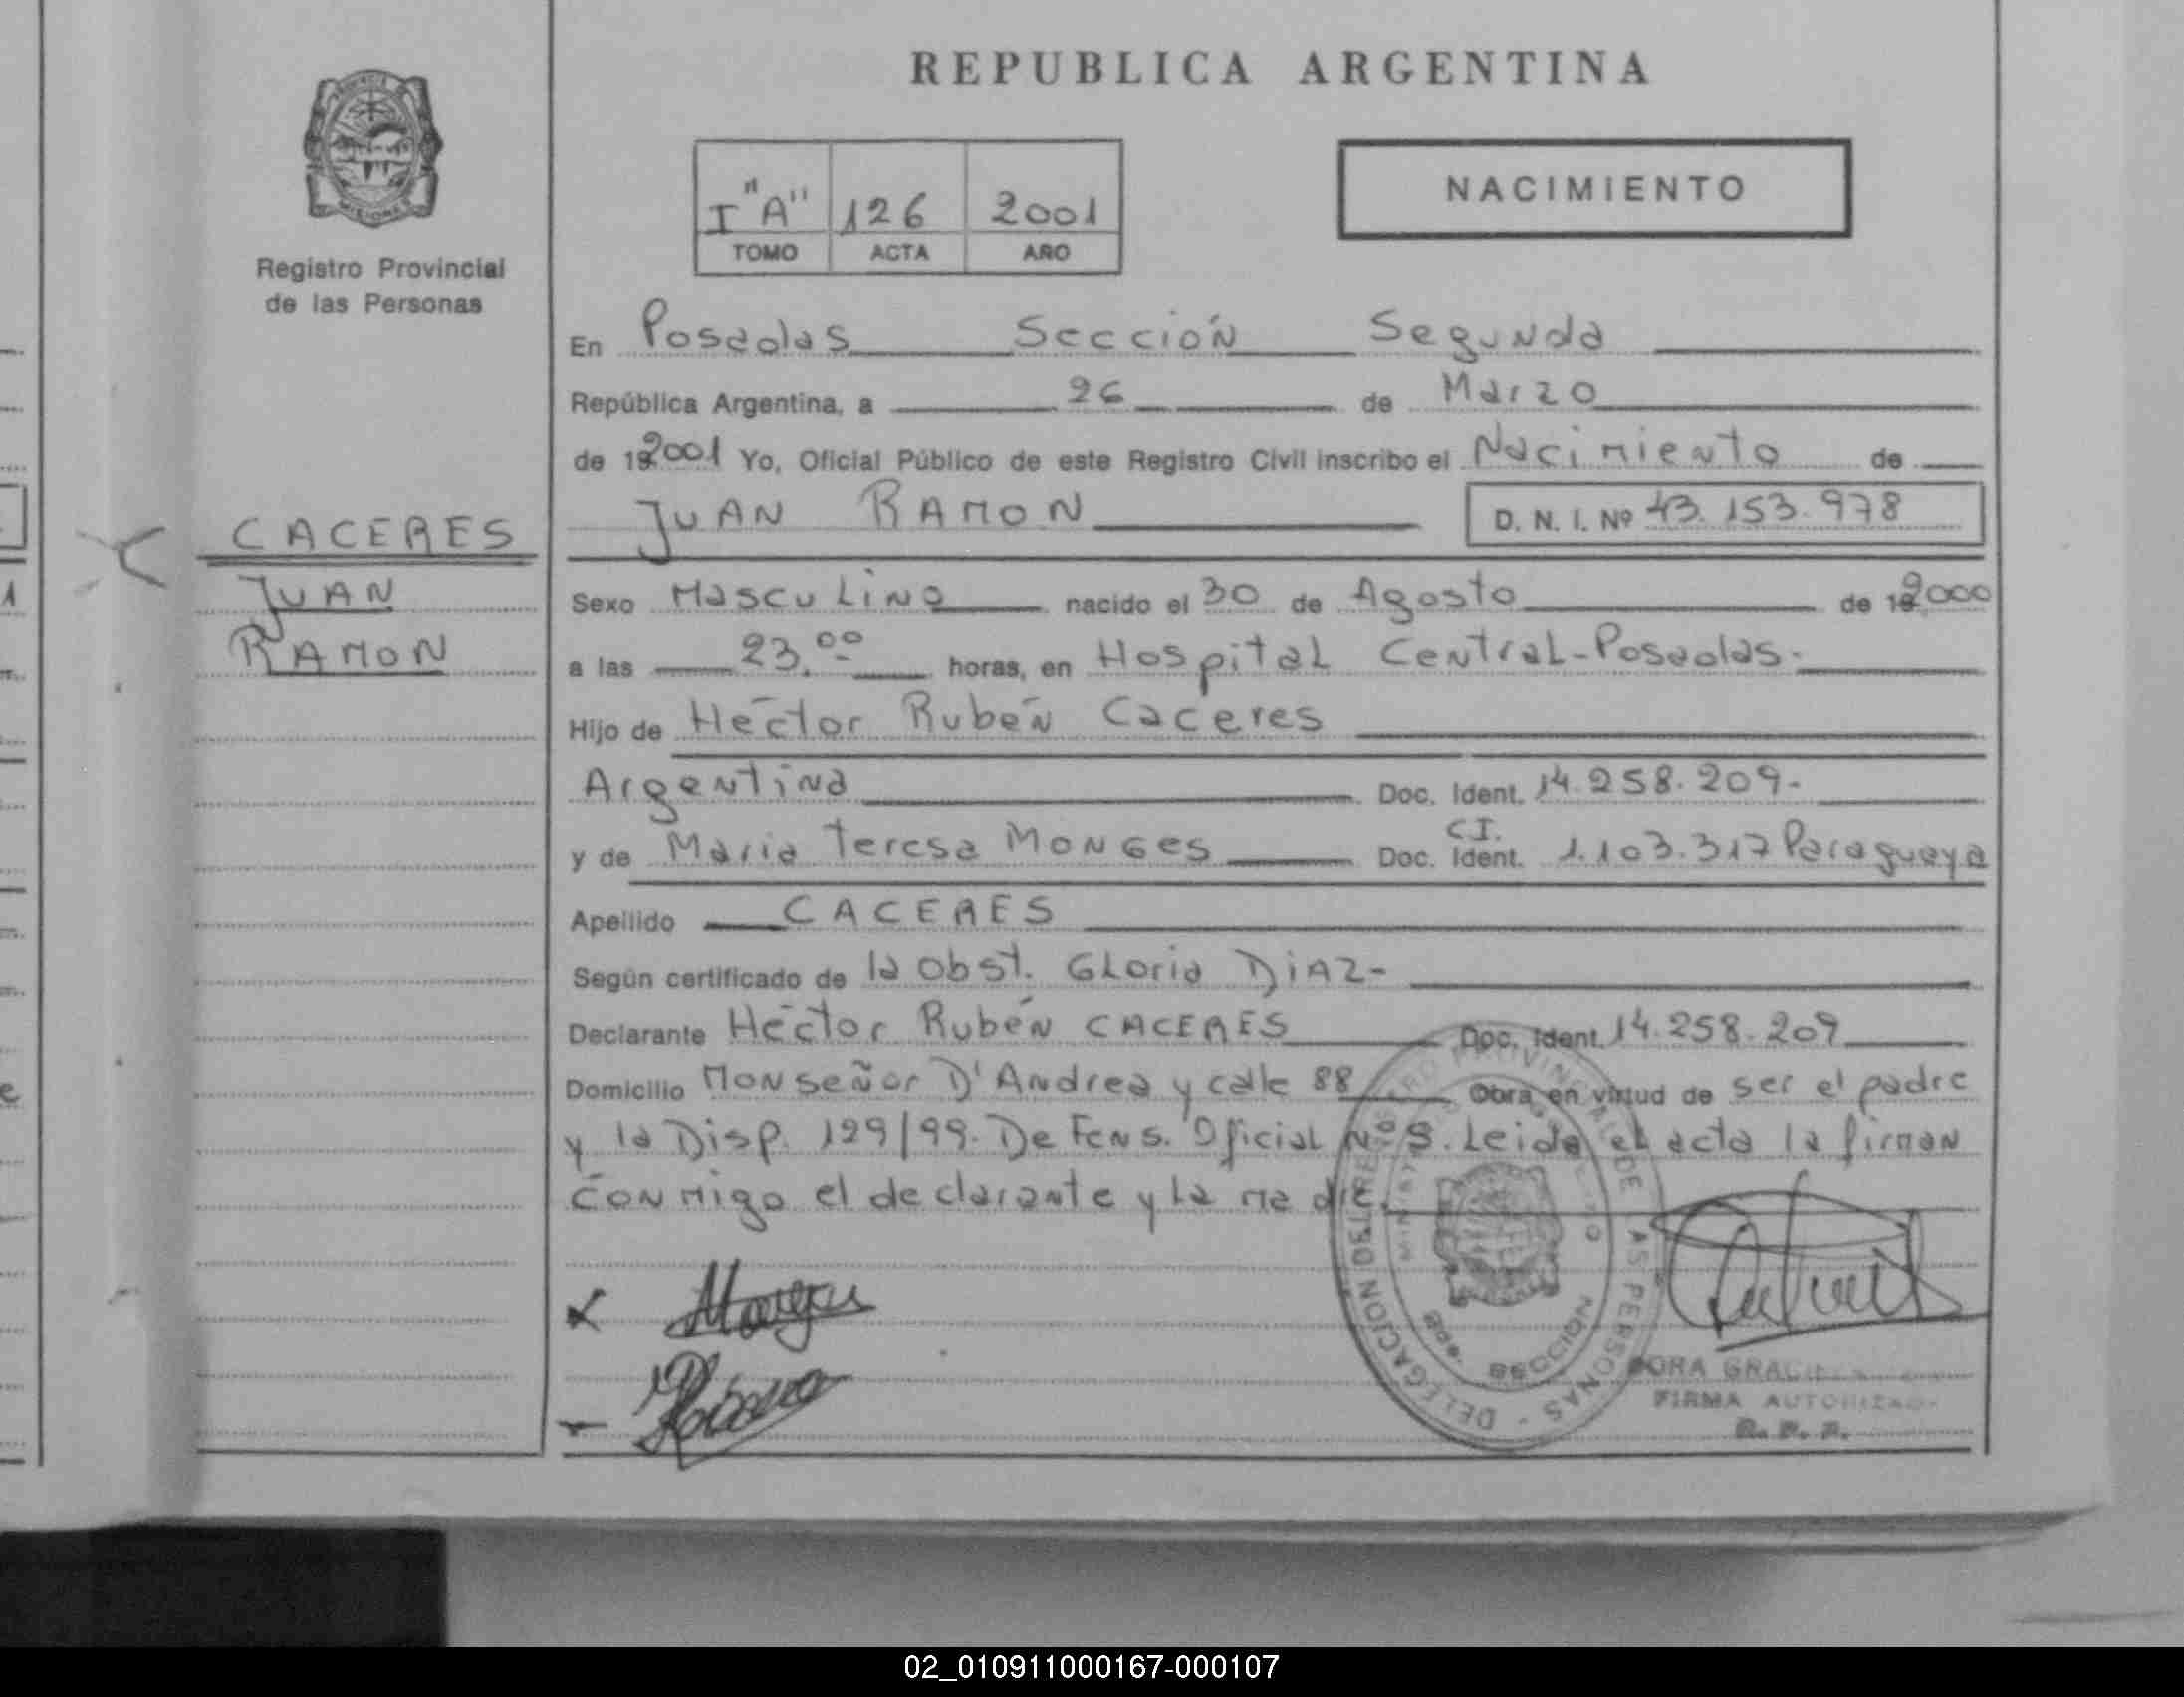 REPUBLICA ARGENTINA
PROVINCIA DE MISIONES
Registro Provincial
de las Personas
I "A" 126 2001
TOMO ACTA AÑO
NACIMIENTO
En Posadas Sección Segunda
República Argentina, a 26 de Marzo
de 2001 Yo, Oficial Público de este Registro Civil inscribo el Nacimiento de
CACERES
JUAN
RAMON
JUAN RAMON D. N. I. Nº 43.153.978
Sexo Masculino nacido el 30 de Agosto de 2000
a las 23.00 horas, en Hospital Central-Posadas.
Hijo de Héctor Rubén Caceres
Argentina Doc. Ident. 14.258.209-
C.I.
y de Maria Teresa MONGES Doc. Ident. 1.103.317 Paraguaya
Apellido CACERES
Según certificado de la Obst. Gloria DIAZ-
Declarante Héctor Rubén CACERES Doc. Ident. 14.258.209
Domicilio Monseñor D'Andrea y calle 88 Obra en virtud de ser el padre
y la Disp. 129/99. Defens. Oficial Nº 3. Leida el acta la firman
conmigo el declarante y la madre.
DELEGACION DEL REGISTRO PROVINCIAL DE LAS PERSONAS
SECCION
FIRMA AUTORIZADA
R. P. P.
02_010911000167-000107